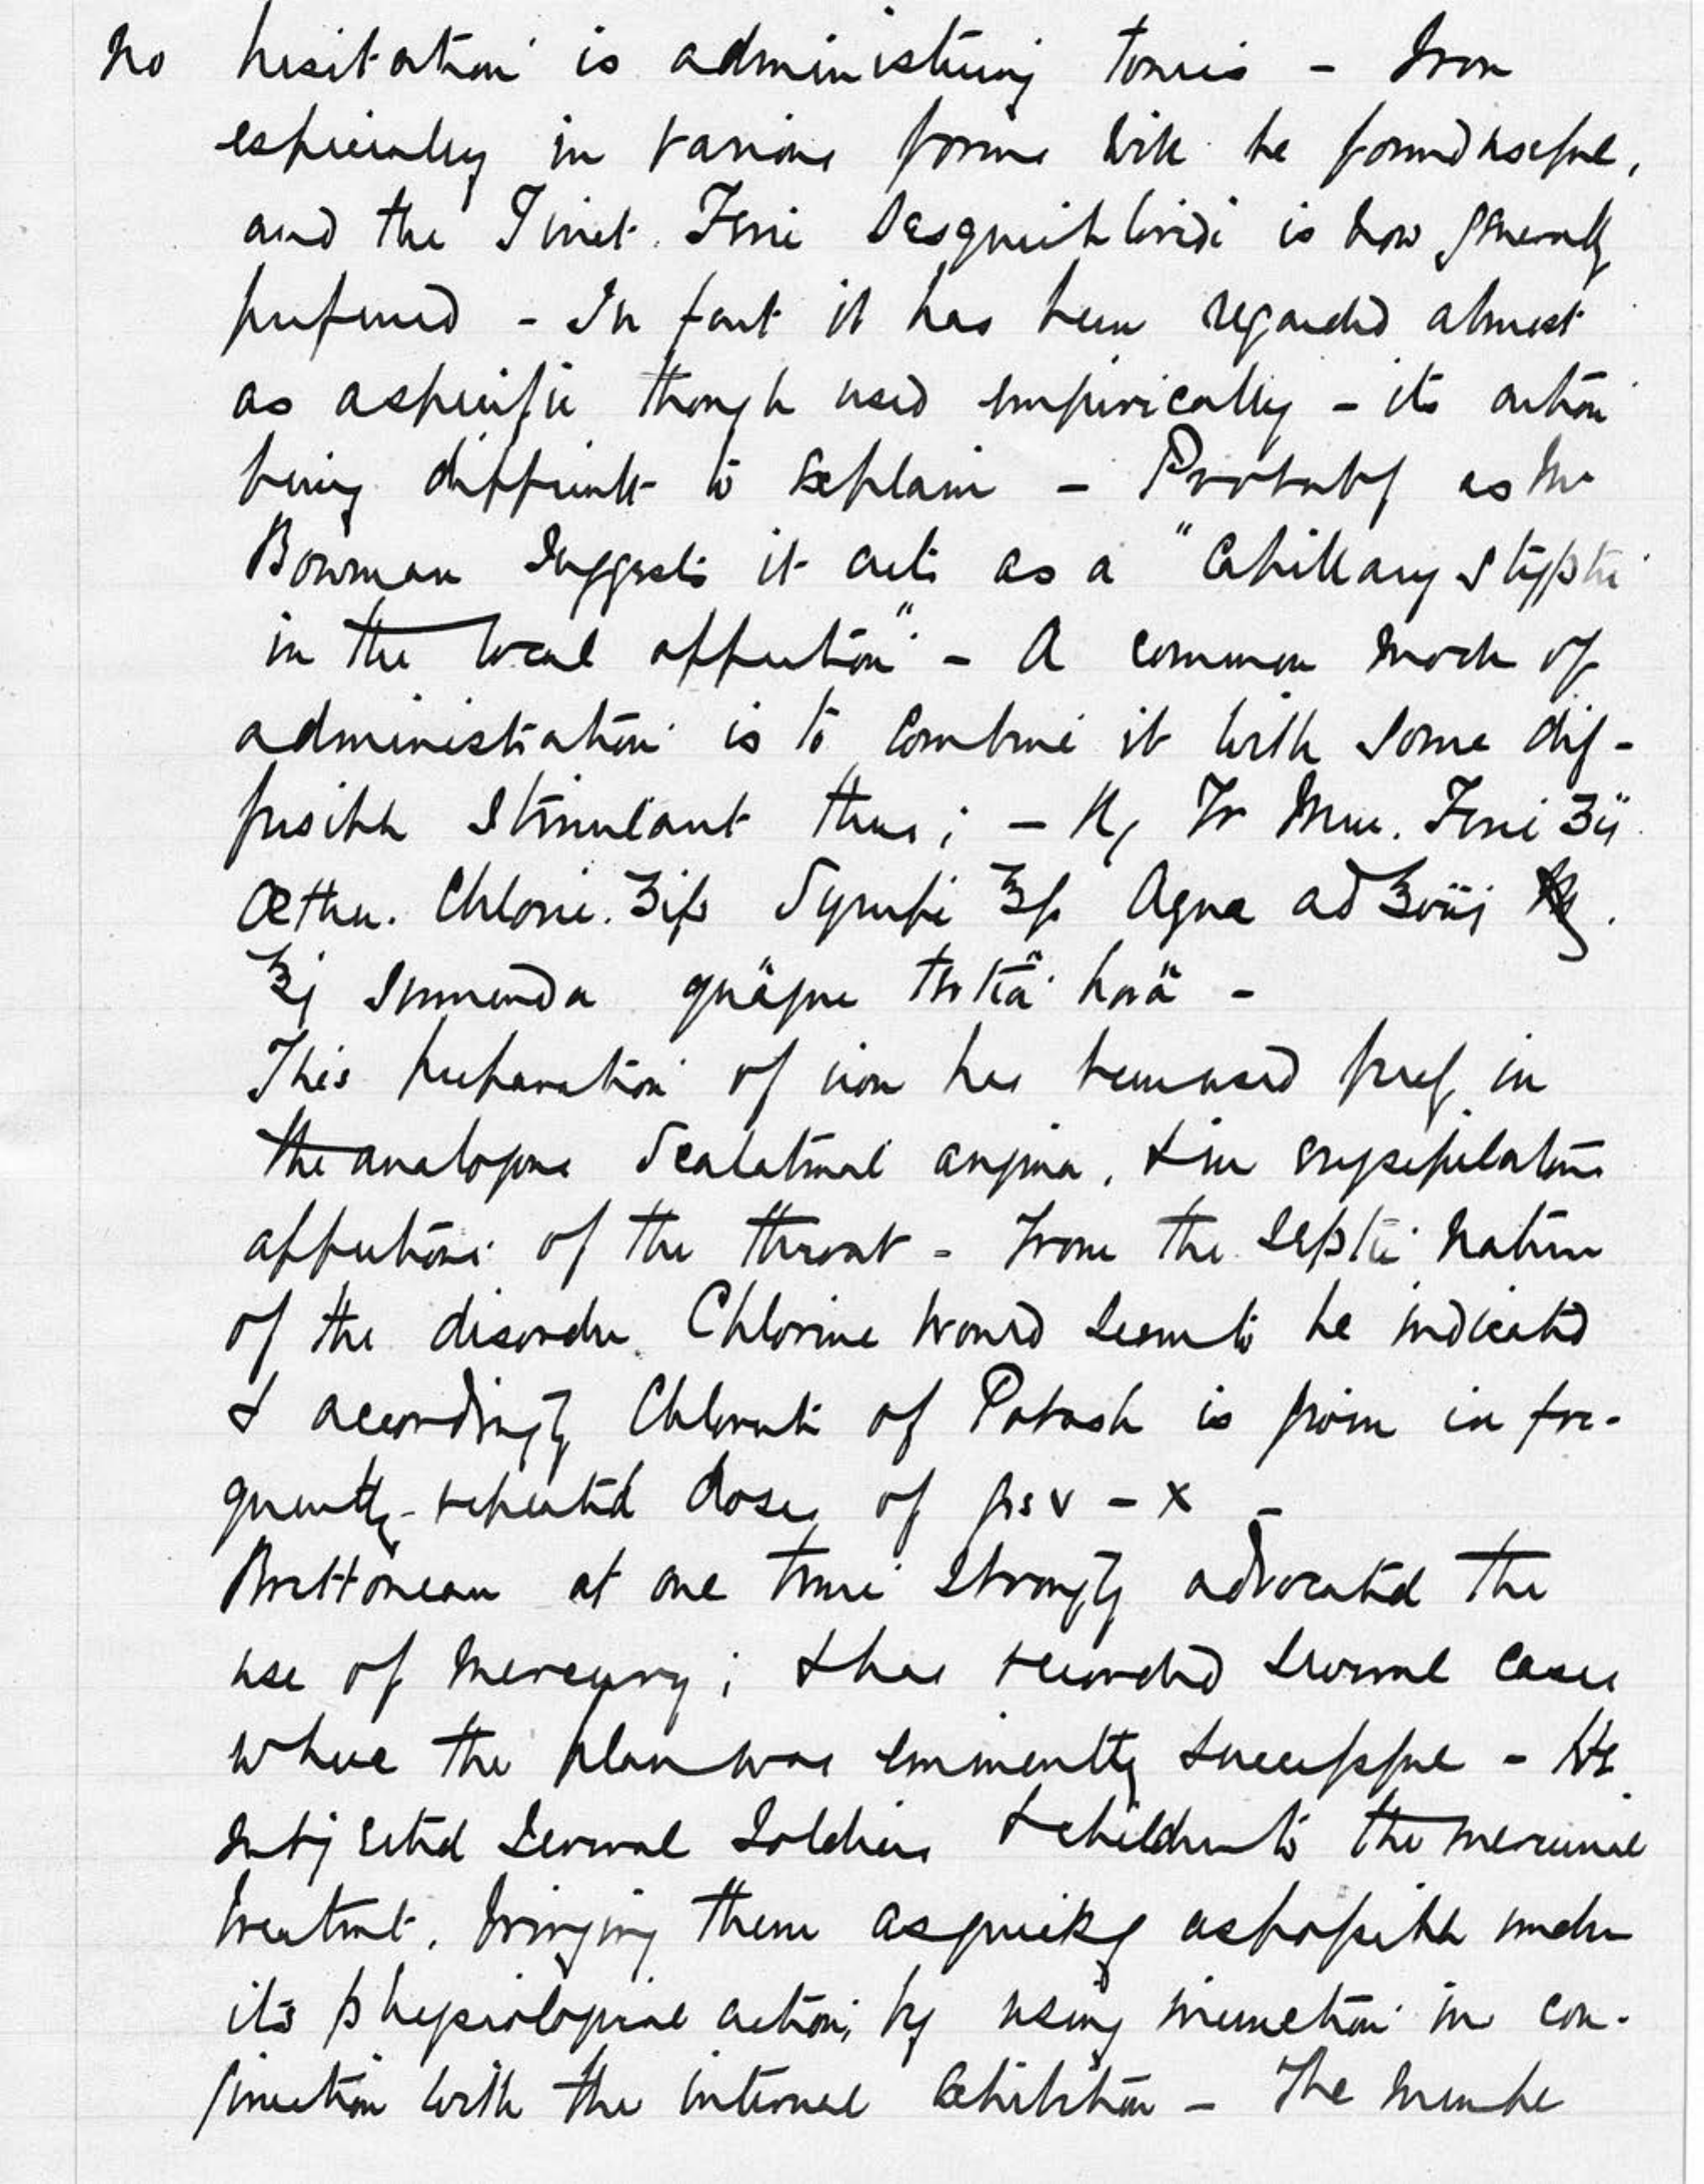 no hesitation is administering tonics - Iron
especially in various forms will be found useful,
and the Tinct. Ferri Sesquichloridi is now generally
preferred - In fact it has been regarded almost
as a specific though used empirically - its action
being difficult to explain - Probably as Mr
Bowman suggests it acts as a "Capillary Styptic
in the local affection" - A common mode of
administration is to combine it with some dif-
fusible stimulant thus; - ℞ Tr Mur. Ferri ʒij
Æther. Chloric. ʒifs Syrupi ℥fs Aqua ad ℥viij
℥j Sumenda quâque tertiâ horâ -
This preparation of iron has been used freely in
the analogous Scarlatinal angina, & in erysipelatous
affections of the throat - From the septic nature
of the disorder Chlorine would seem to be indicated
& accordingly Chlorate of Potash is given in fre-
quently-repeated doses of grs v - x -
Brettoneau at one time strongly advocated the
use of Mercury; & has recorded several cases
where the plan was eminently successful - He
subjected several Soldiers & children to the mercurial
treatmt, bringing them as quickly as possible under
its physiological action, by using inunction in con-
junction with the internal exhibition - The